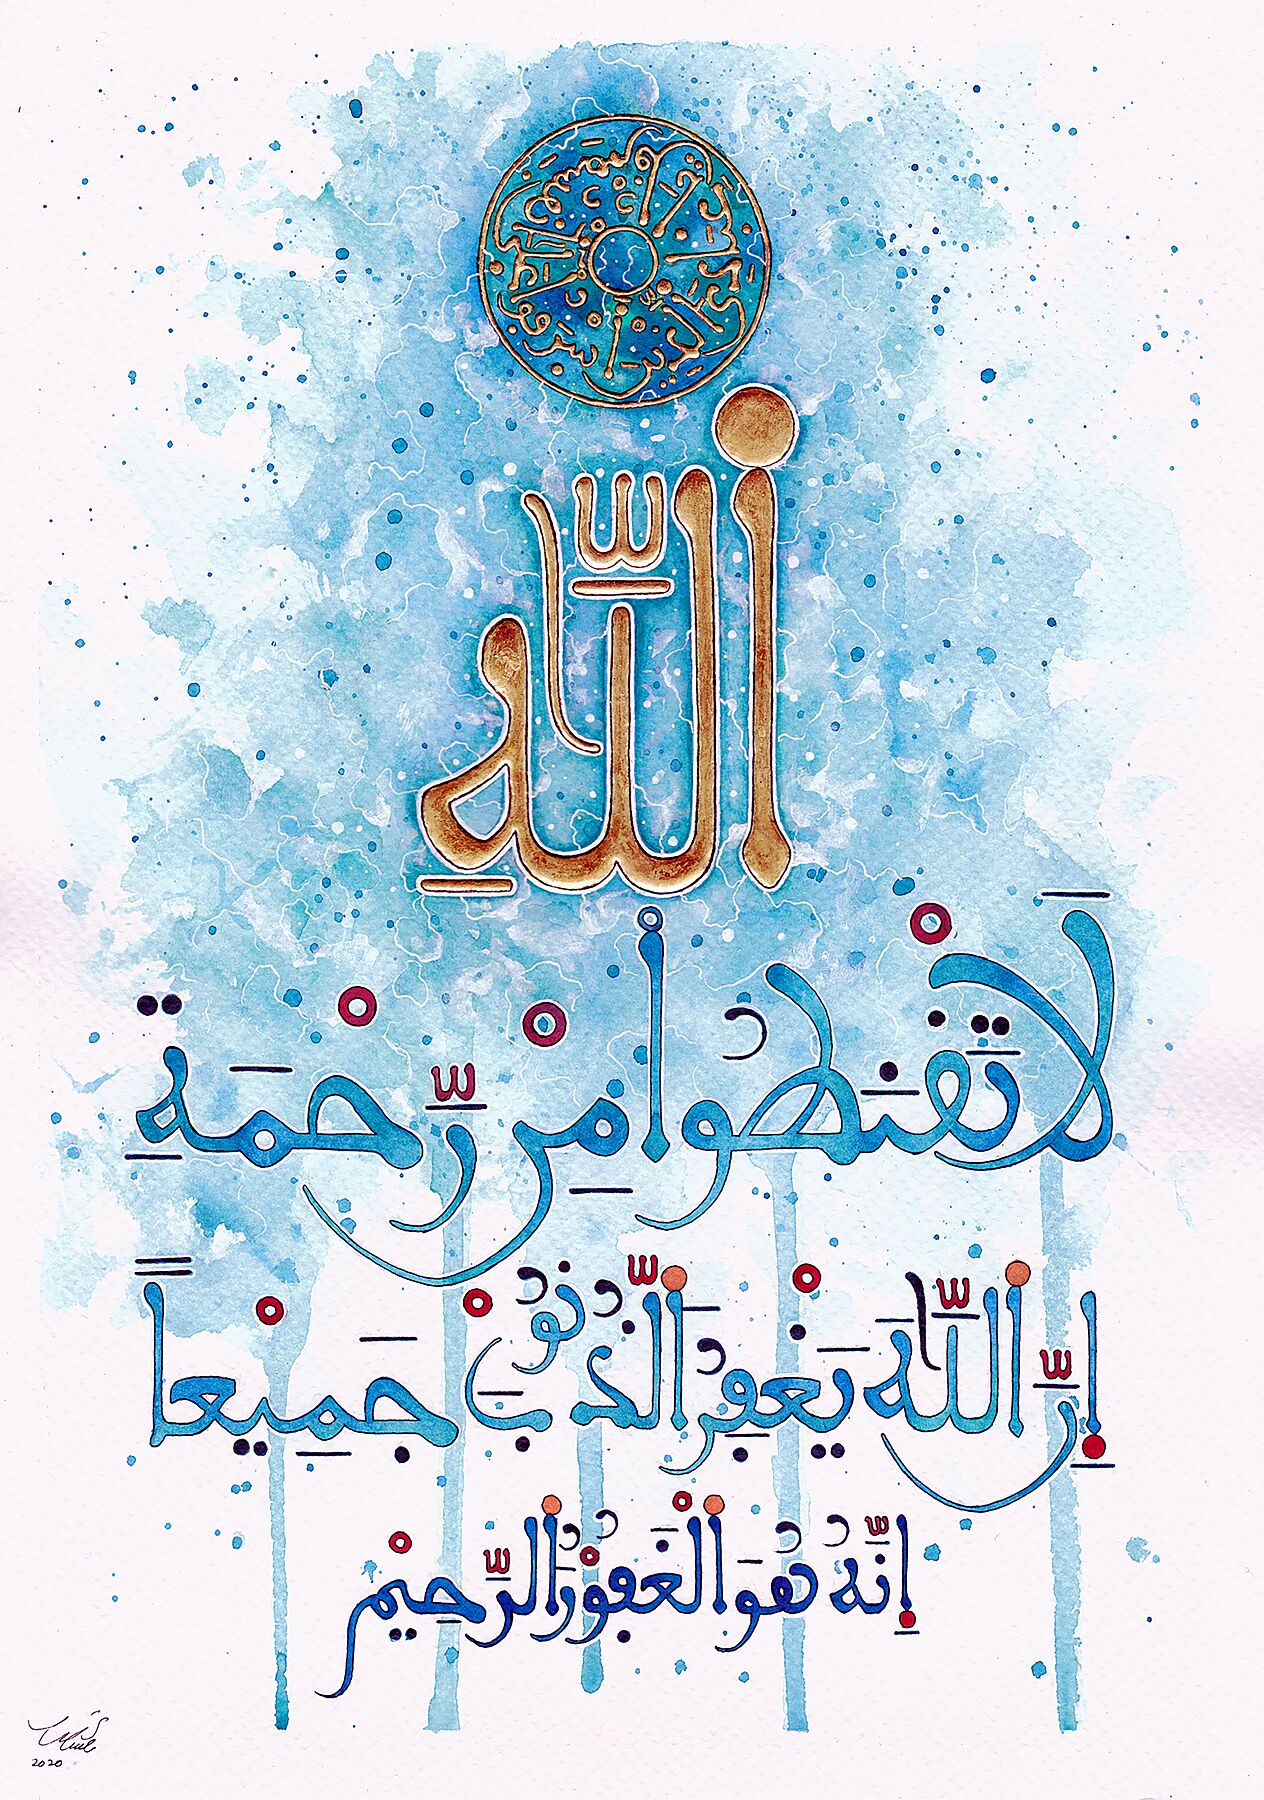 قُلْ يَٰعِبَادِيَ ٱلَّذِينَ أَسْرَفُوا عَلَىٰ أَنْفُسِهِمْ
ٱللَّهِ
لَا تَقْنَطُوا مِنْ رَّحْمَةِ
إِنَّ ٱللَّهَ يَغْفِرُ ٱلذُّنُوبَ جَمِيعاً
إِنَّهُ هُوَ ٱلْغَفُورُ ٱلرَّحِيمْ
2020